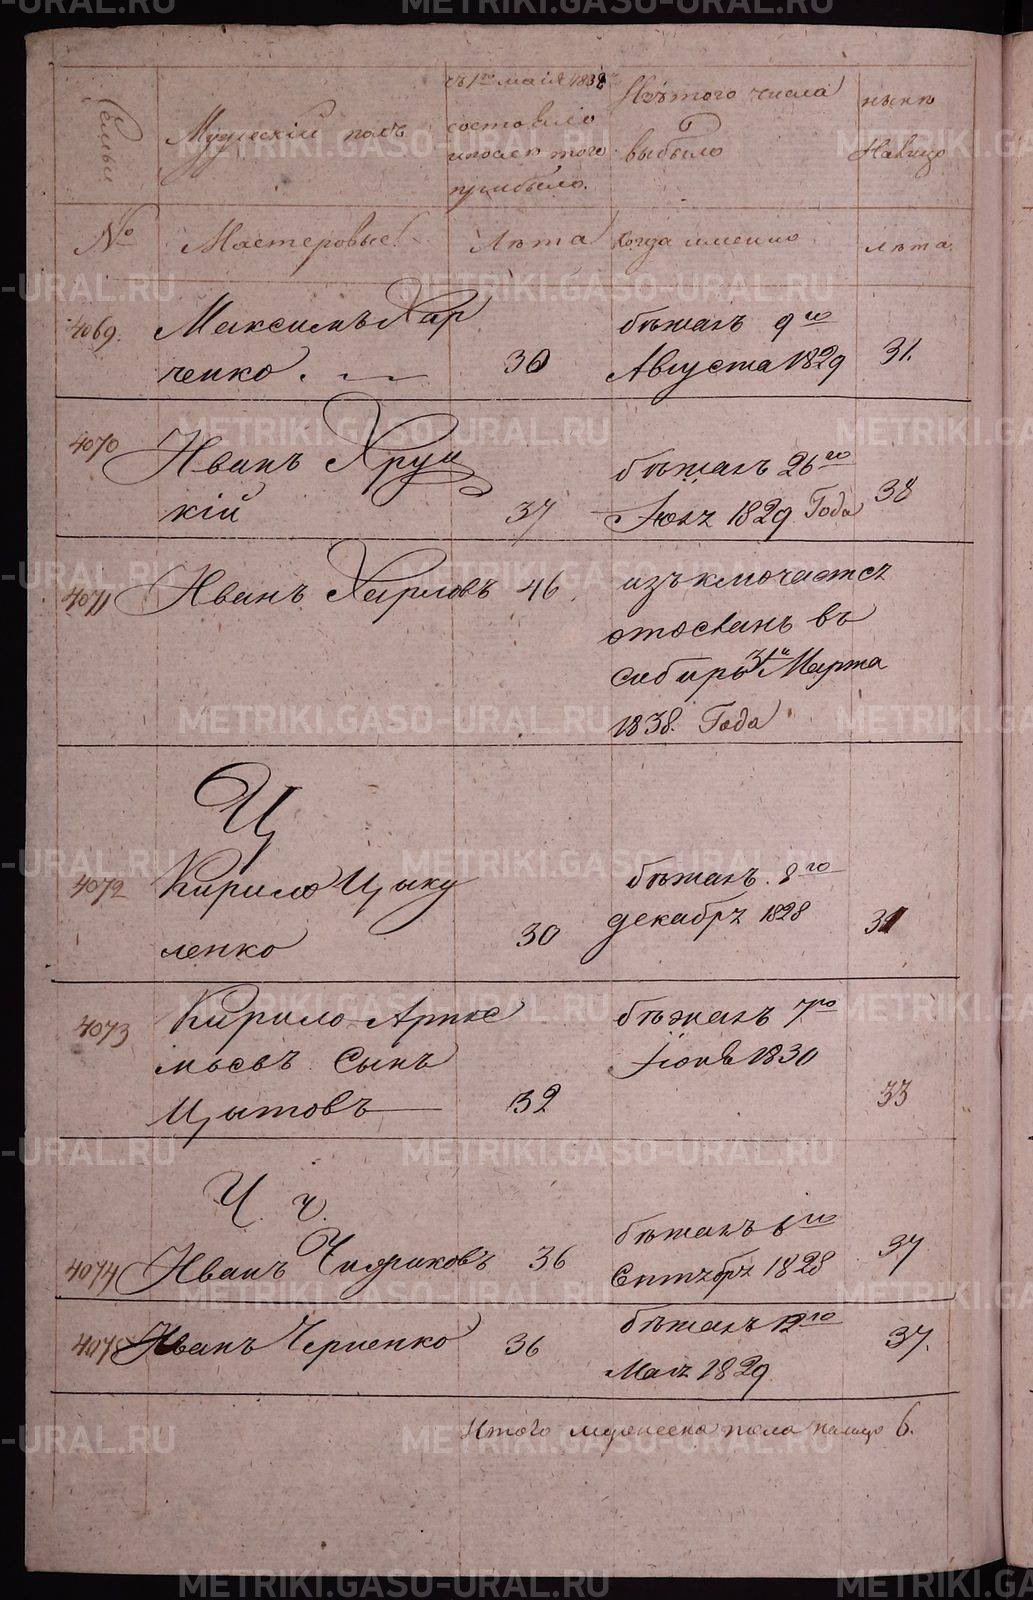 METRIKI.GASO-URAL.RU
Семьи
Мужескій полъ
съ 1го маія 1838
состояло
и после того
прибыло.
Изъ того числа
выбыло
ныне
Налицо
№
Мастеровые
Лѣта
Когда именно
лѣта
4069.
Максимъ Хар
ченко.
30
бѣжалъ 9го
Августа 1829
31.
4070
Иванъ Хруц
кій
37
бѣжалъ 26го
Іюля 1829 Года
38
4071
Иванъ Харловъ
46
изъключается
отосланъ въ
Сибирь 31й Марта
1838. Года
Ц
4072
Кирило Цыку
ленко
30
бѣжалъ 8го
декабря 1828
31
4073
Кирило Арте
мьевъ Сынъ
Цытовъ
32
бѣжалъ 7го
Іюня 1830
33
Ч. ч.
4074
Иванъ
36
бѣжалъ 6го
Сентября 1828
37
4075
Иванъ Черненко
36
бѣжалъ 12го
Мая 1829
37.
Итого мужеска пола налицо 6.